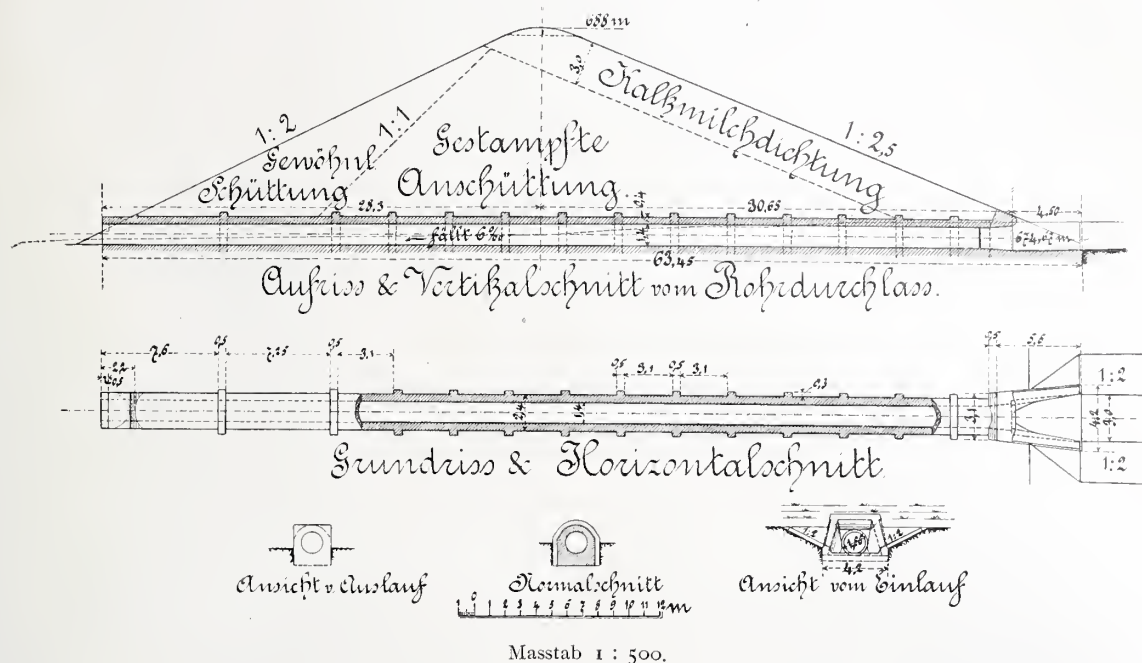 688 m
3,0
Kalkmilchdichtung
1:2
1:1
1:2,5
Gewöhnl.
Schüttung
Gestampfte
Anschüttung.
28,3
0,4
30,65
4,50
fällt 6‰
1,4
674,67 m
63,45
Aufriss & Vertikalschnitt vom Rohrdurchlass.
7,6
0,5
7,25
0,5
3,1
0,5
3,1
0,5
3,1
0,3
0,5
5,6
2,2
0,5
1:2
2,4
1,4
3,1
4,2
3,0
1:2
Grundriss & Horizontalschnitt.
1:2
1:2
4,2
Ansicht v. Auslauf
Normalschnitt
Ansicht vom Einlauf
1 0 1 2 3 4 5 6 7 8 9 10 11 12 m
Masstab 1 : 500.